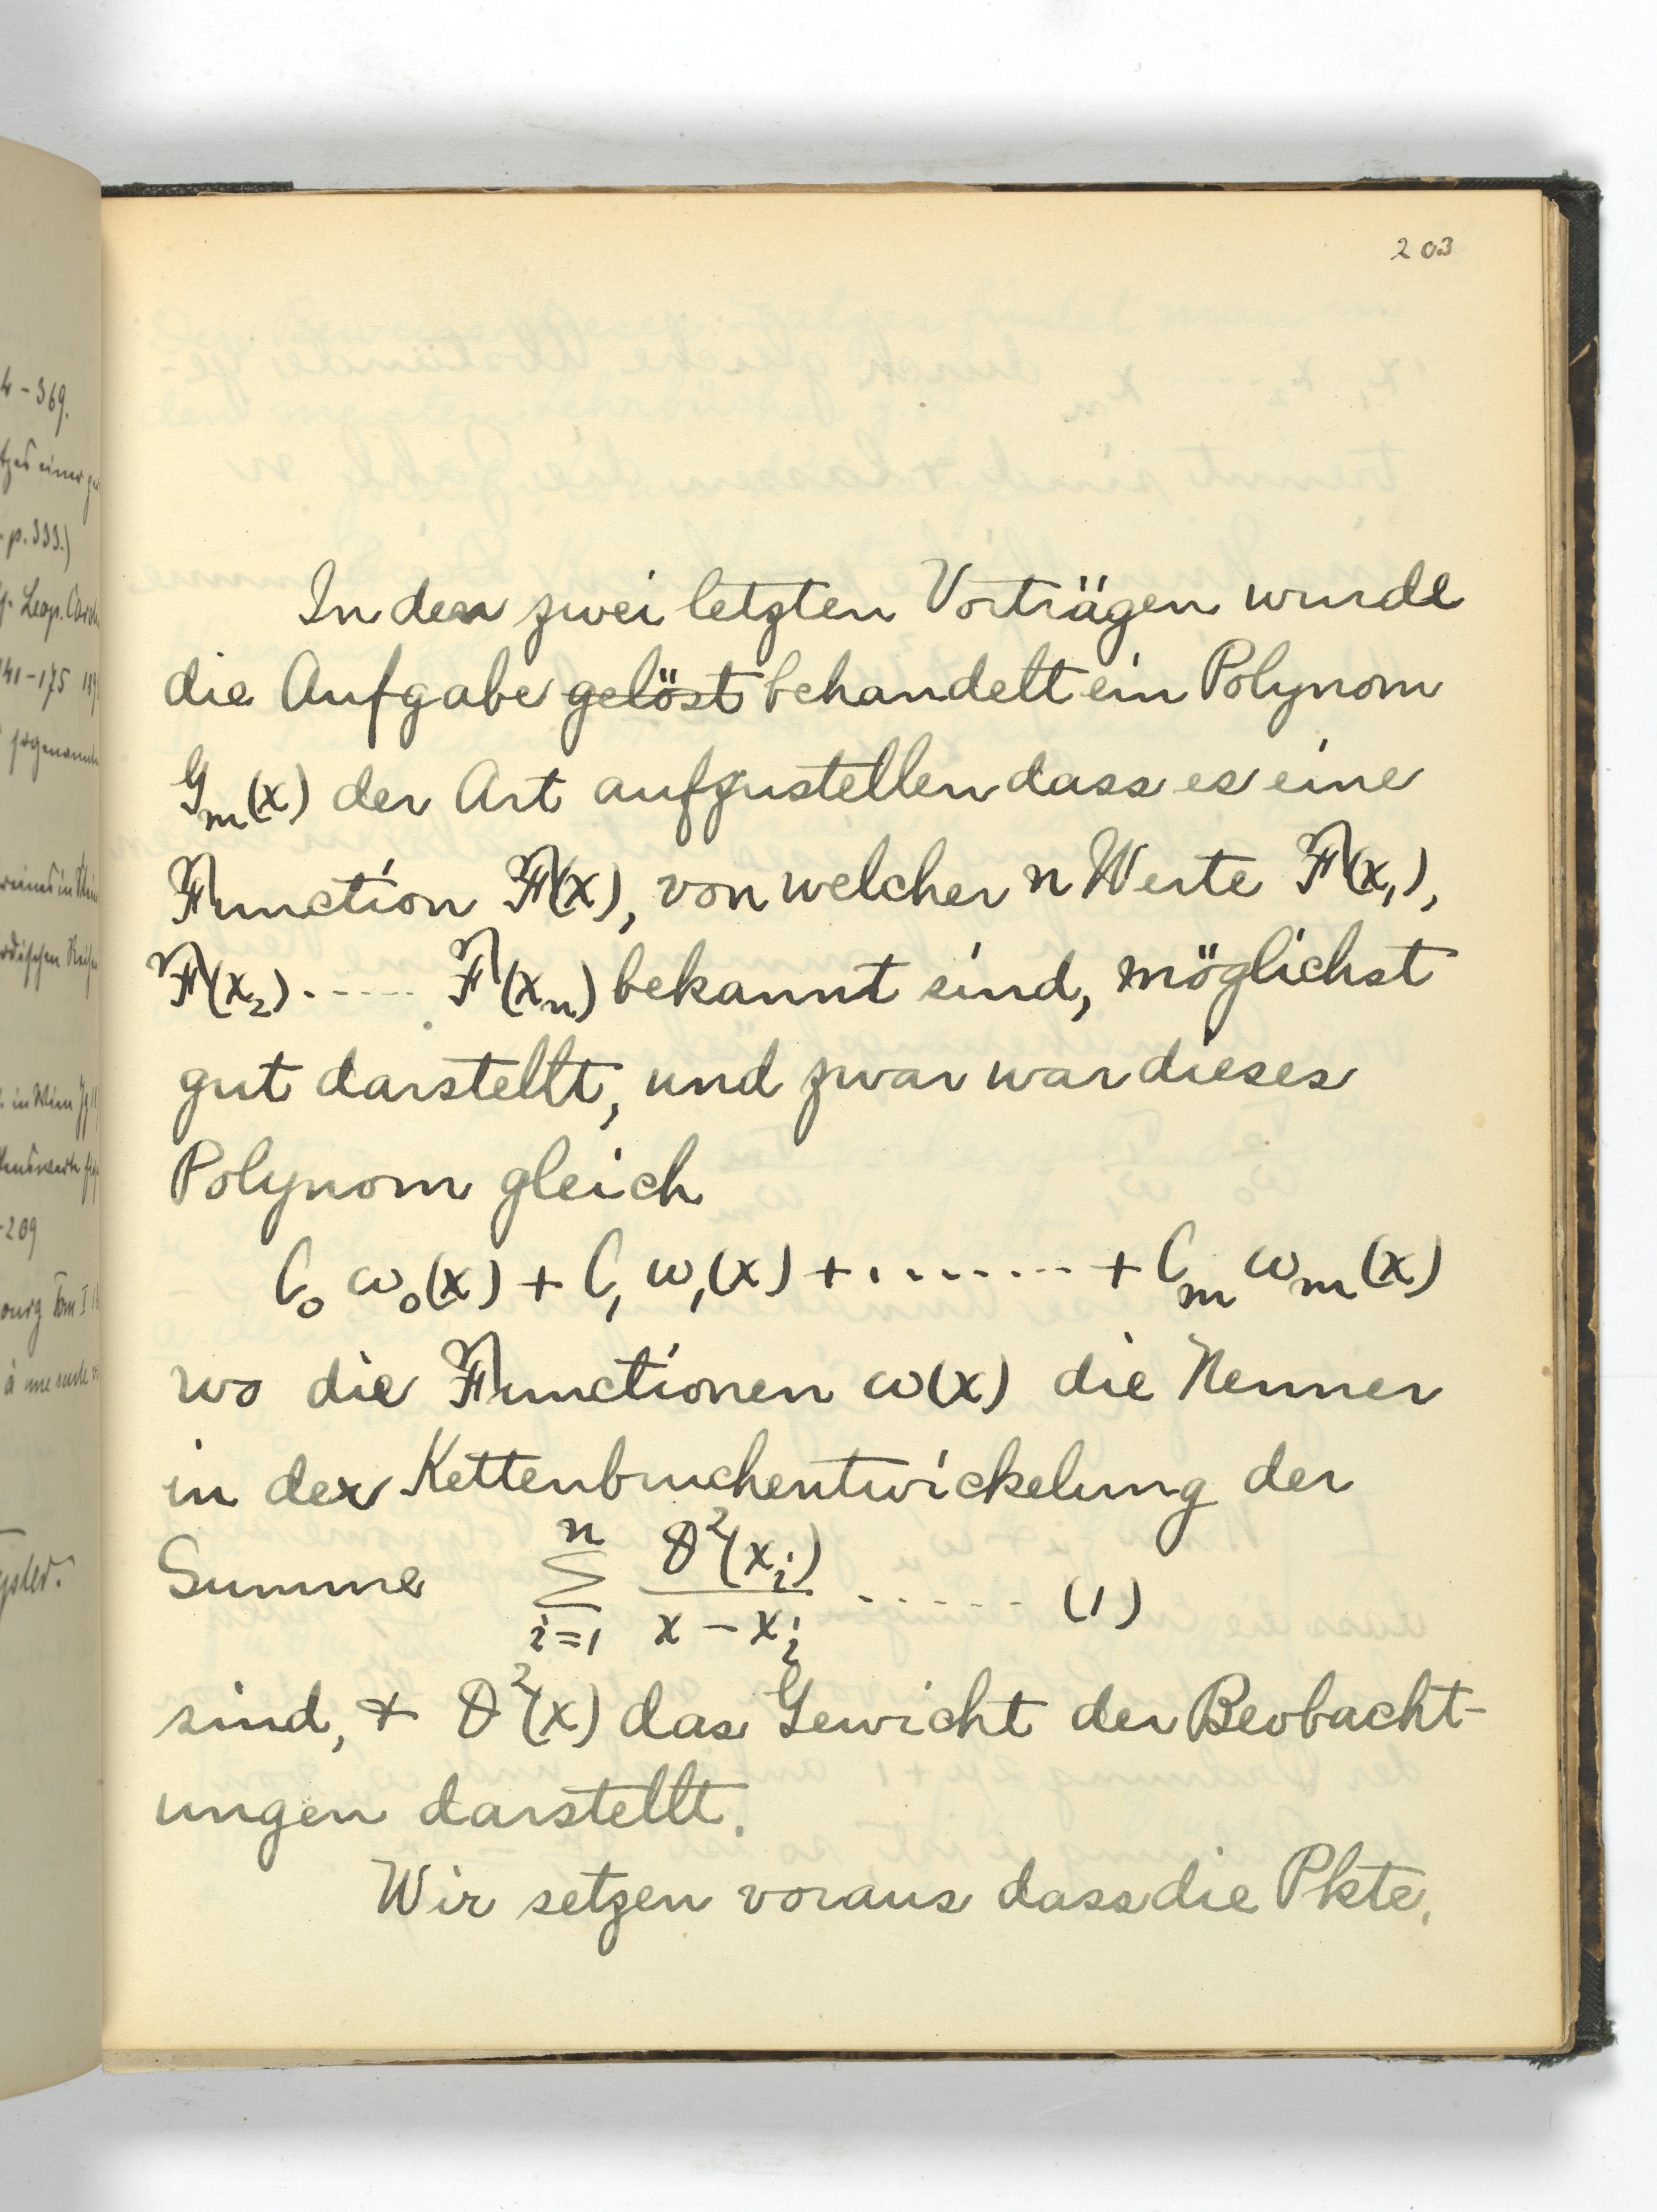 4 – 369.
p. 333.)
Leop.
141–175
-209
203
In den zwei letzten Vorträgen wurde
die Aufgabe gelöst behandelt ein Polynom
G_m(x) der Art aufzustellen dass es eine
Function F(x), von welcher n Werte F(x₁),
F(x₂) ...... F(x_n) bekannt sind, möglichst
gut darstellt, und zwar war dieses
Polynom gleich
C₀ ω₀(x) + C₁ ω₁(x) + ........ + C_m ω_m(x)
wo die Functionen ω(x) die Nenner
in der Kettenbruchentwickelung der
Summe \sum_{i=1}^{n} \frac{θ²(x_i)}{x - x_i} ...... (1)
sind, + θ²(x) das Gewicht der Beobacht-
ungen darstellt.
Wir setzen voraus dass die Pkte.